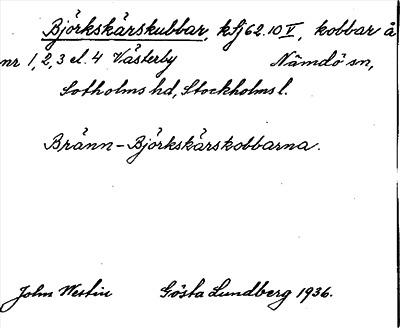 Björkskärskubbar, kfj 62.10 V, kobbar å
nr 1, 2, 3 el. 4 Västerby Nämdö sn,
Sotholms hd, Stockholms l.
Bränn-Björkskärskobbarna.
John Westin Gösta Lundberg 1936.